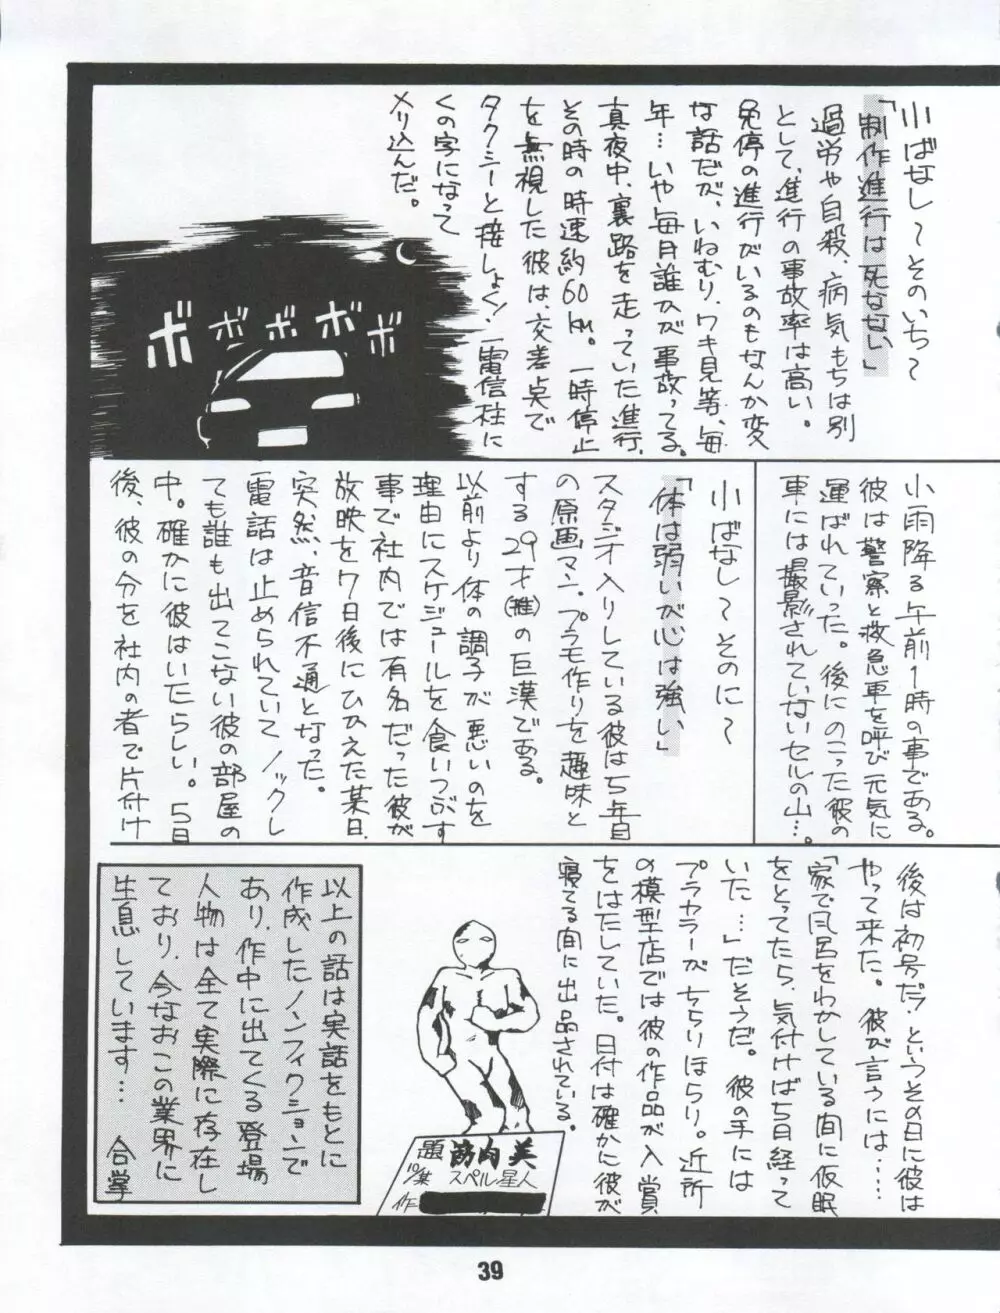 小ばなし～そのいち～
「制作進行は死なない」
過労や自殺、病気もちは別
として、進行の事故率は高い。
免停の進行がいるのもなんか変
な話だが、いねむり、ワキ見等、毎
年…いや毎月誰かが事故ってる。
真夜中、裏路を走っていた進行、
その時の時速約60km。一時停止
を無視した彼は、交差点で
タクシーと接しょく！電信柱に
くの字になって
メリ込んだ。
ボボボボボ
小雨降る午前1時の事である。
彼は警察と救急車を呼び元気に
運ばれていった。後にのこった彼の
車には撮影されていないセルの山…。
小ばなし～そのに～
「体は弱いが心は強い」
スタジオ入りしている彼は5年目
の原画マン。プラモ作りを趣味と
する29才(推)の巨漢である。
以前より体の調子が悪いのを
理由にスケジュールを食いつぶす
事で社内では有名だった彼が
放映を7日後にひかえた某日、
突然、音信不通となった。
電話は止められていて、ノックし
ても誰も出てこない彼の部屋の
中。確かに彼はいたらしい。5日
後、彼の分を社内の者で片付け
後は初号だ！というその日に彼は
やって来た。彼が言うには……
「家で風呂をわかしている間に仮眠
をとってたら、気付けば5日経って
いた…」だそうだ。彼の手には
プラカラーがちらりほらり。近所
の模型店では彼の作品が入賞
をはたしていた。日付は確かに彼が
寝てる間に出品されている。
題 筋肉美
スペル星人
作
以上の話は実話をもとに
作成したノンフィクションで
あり、作中に出てくる登場
人物は全て実際に存在し
ており、今なおこの業界に
生息しています… 合掌
39